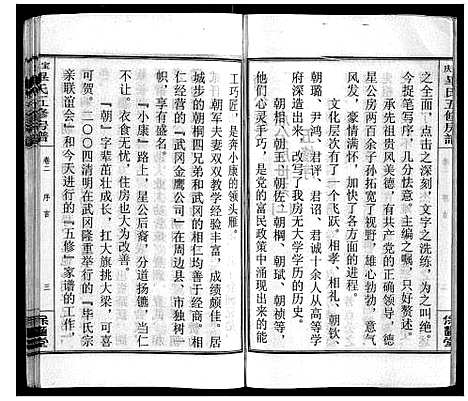 之全面,点击之深刻,文字之洗练,为之叫绝。
今捉笔写序,几分怯意。主编之嘱,只好赘述。
承先祖贵风美德,有共产党的正确领导,德
星公房两百余子孙拓宽了视野,雄心勃勃,意气
风发,豪情满怀,加快了各方面的进程。
文化层次有了一个飞跃。相孝、相礼、朝钦、
朝璐、尹鸿、君评、君诏、君诚十余人从高等学
府深造出来,改写了我房无大学学历的历史。
朝相、朝玉、朝佐、朝桐、朝斌、朝桢等,
他们心灵手巧,是党的富民政策中涌现出来的能
工巧匠,是奔小康的领头雁。
朝军夫妻双双教学经验丰富,成绩颇佳。居
城步的朝桐四兄弟和武冈的相仁均善于经商。相
仁经营的『武冈金鹰公司』在周边县、市独树一
帜,享有盛名。
『小康』路上,星公后裔,分道扬镳,当仁
不让。衣食无忧,住房也大为改善。
『朝』字辈茁壮成长,扛大旗挑大梁,可喜
可贺。二〇〇四清明在武冈隆重举行的『毕氏宗
亲联谊会』和今天进行的『五修』家谱的工作,
卷二 序言 三